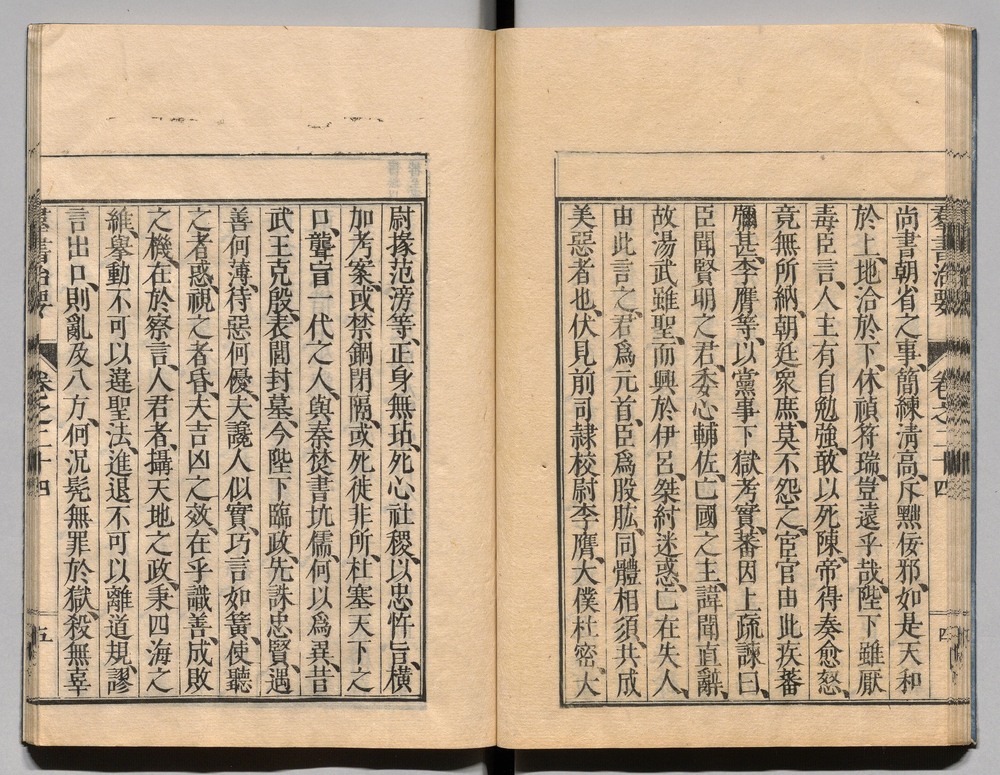 羣書治要 卷之二十四 四
尚書朝省之事、簡練清高、斥黜佞邪、如是天和
於上、地洽於下、休禎符瑞、豈遠乎哉、陛下雖厭
毒臣言、人主有自勉強、敢以死陳、帝得奏愈怒、
竟無所納、朝廷衆庶、莫不怨之、宦官由此疾蕃
彌甚、李膺等、以黨事下獄考實、蕃因上疏諫曰、
臣聞賢明之君、委心輔佐、亡國之主、諱聞直辭、
故湯武雖聖、而興於伊呂、桀紂迷惑、亡在失人、
由此言之、君爲元首、臣爲股肱、同體相須、共成
美惡者也、伏見前司隷校尉李膺、大僕杜密、大
尉掾范滂等、正身無玷、死心社稷、以忠忤旨、橫
加考案、或禁錮閉隔、或死徙非所、杜塞天下之
口、聾盲一代之人、與秦焚書坑儒、何以爲異、昔
武王克殷、表閭封墓、今陛下臨政、先誅忠賢、遇
善何薄、待惡何優、夫讒人似實、巧言如簧、使聽
之者惑、視之者昏、夫吉凶之效、在乎識善、成敗
之機、在於察言、人君者、攝天地之政、秉四海之
維、擧動不可以違聖法、進退不可以離道規、謬
言出口、則亂及八方、何況髡無罪於獄、殺無辜
羣書治要 卷之二十四 五